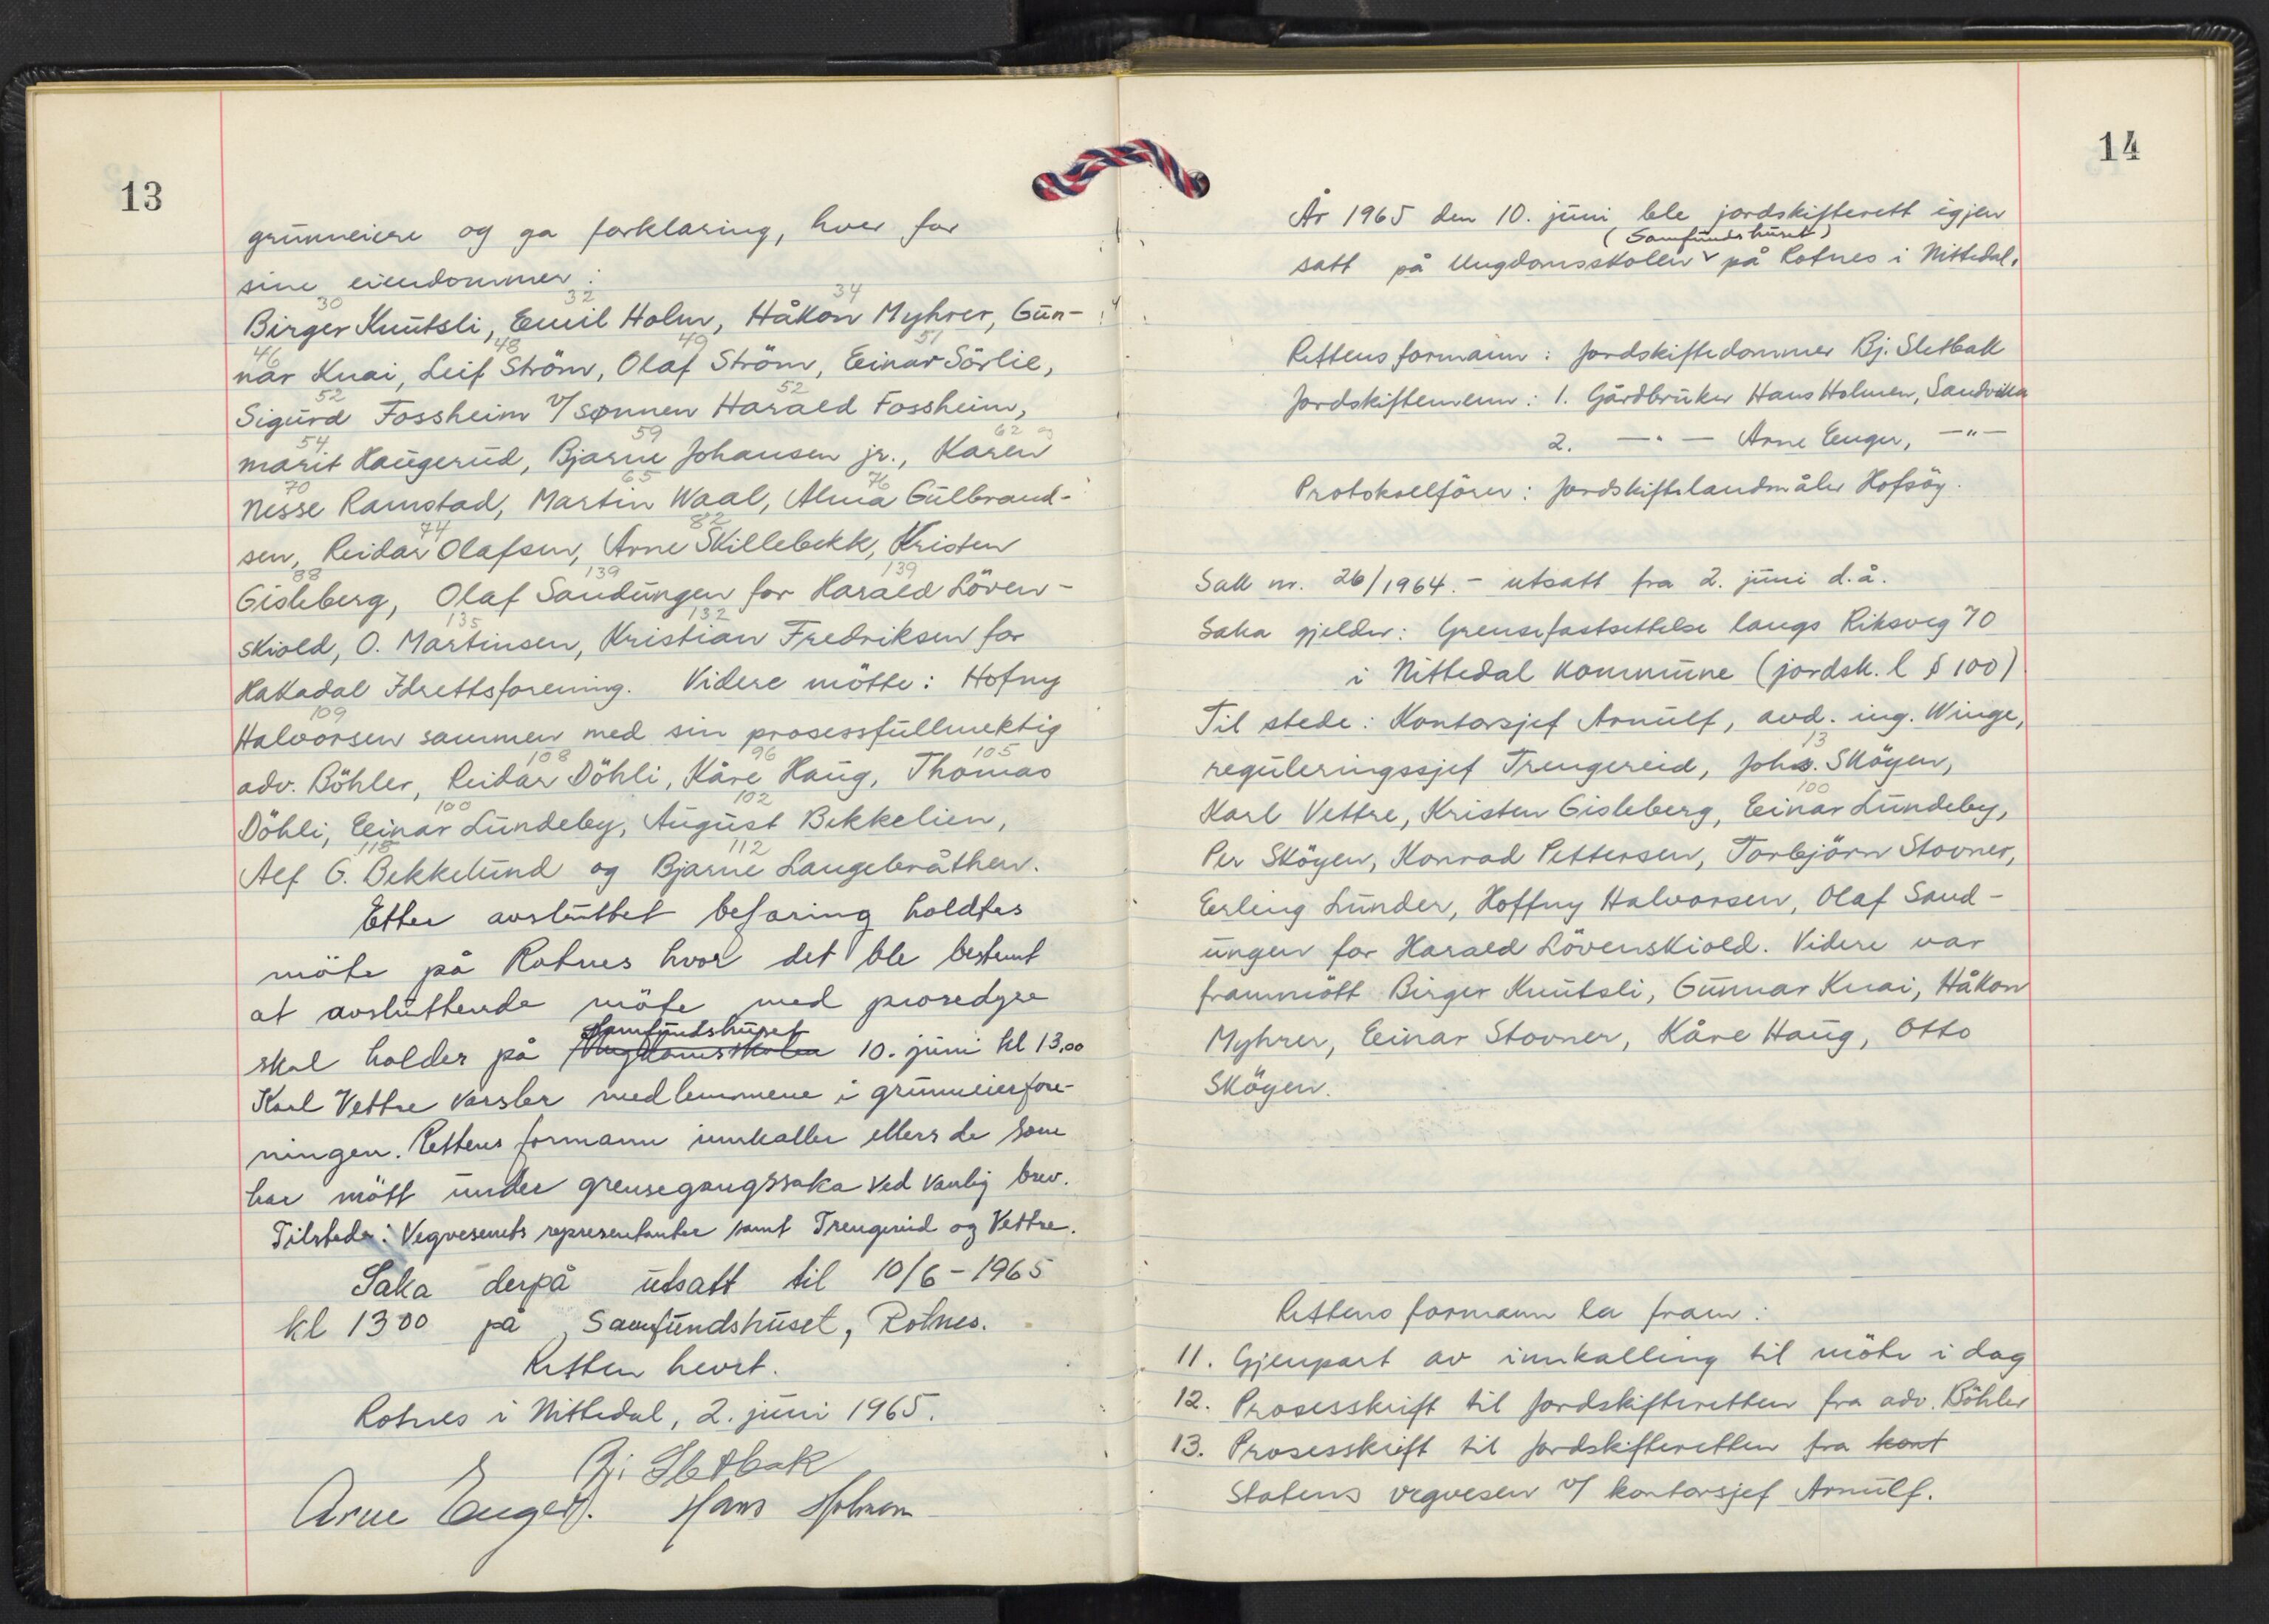 13
grunneiere og ga forklaring, hver for
sine eiendommer:
30 32 34
Birger Knutsli, Emil Holm, Håkon Myhrer, Gun-
46 48 49 51
nar Knai, Leif Ström, Olaf Ström, Einar Sörlie,
52 52
Sigurd Fossheim v/sønnen Harald Fossheim,
54 59 62 og
Marit Haugerud, Bjarne Johansen jr., Karen
70 65 76
Nesse Ramstad, Martin Waal, Alma Gulbrand-
74 82
sen, Reidar Olafsen, Arne Skillebekk, Kristen
88 139 139
Gisleberg, Olaf Sandungen for Harald Löven-
135 132
skiold, O. Martinsen, Kristian Fredriksen for
Hakadal Idrettsforening. Videre mötte: Hofny
109
Halvorsen sammen med sin prosessfullmektig
108 96 105
adv. Böhler, Reidar Döhli, Kåre Haug, Thomas
100 102
Döhli, Einar Lundeby, August Bekkelien,
115 112
Alf G. Bekkelund og Bjarne Langebråthen.
Etter avsluttet befaring holdtes
möte på Rotnes hvor det ble bestemt
at avsluttende möte med prosedyre
Samfundshuset
skal holdes på Ungdomsskolen 10. juni kl 13,00
Karl Vettre varsler medlemmene i grunneierfore-
ningen. Rettens formann innkaller ellers de som
har mött under grensegangssaka ved vanlig brev.
Tilstede: Vegvesenets representanter samt Trengereid og Vettre.
Saka derpå utsatt til 10/6-1965
kl 1300 på Samfundshuset, Rotnes.
Retten hevet.
Rotnes i Nittedal, 2. juni 1965.
Bj. Sletbak
Arne Enger. Hans Holmen
14
År 1965 den 10. juni ble jordskifterett igjen
(Samfundshuset)
satt på Ungdomsskolen på Rotnes i Nittedal.
Rettens formann: Jordskiftedommer Bj. Sletbak
Jordskiftemenn: 1. Gårdbruker Hans Holmen, Sandvika
2. —"— Arne Enger, —"—
Protokollförer: Jordskiftelandmåler Hofsöy.
Sak nr. 26/1964. - utsatt fra 2. juni d.å.
Saka gjelder: Grensefastsettelse langs Riksveg 70
i Nittedal kommune (jordsk. l § 100)
Til stede: Kontorsjef Arnulf, avd. ing. Winge,
13
reguleringssjef Trengereid, Johs. Sköyen,
100
Karl Vettre, Kristen Gisleberg, Einar Lundeby,
Per Sköyen, Konrad Pettersen, Torbjörn Stovner,
Erling Lunder, Hoffny Halvorsen, Olaf Sand-
ungen for Harald Lövenskiold. Videre var
frammött Birger Knutsli, Gunnar Knai, Håkon
Myhrer, Einar Stovner, Kåre Haug, Otto
Sköyen.
Rettens formann la fram:
11. Gjenpart av innkalling til möte i dag
12. Prosesskrift til Jordskifteretten fra adv. Böhler
13. Prosesskrift til Jordskifteretten fra kont
Statens vegvesen v/ kontorsjef Arnulf.